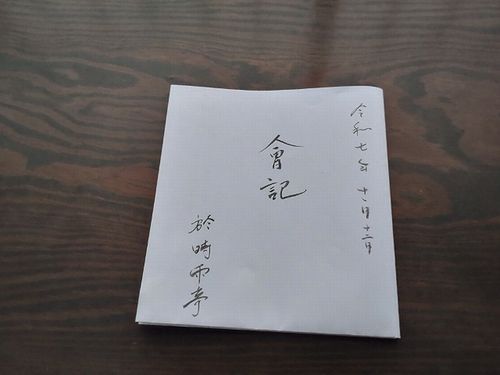 令和七年十一月十二日
會記
於時雨亭